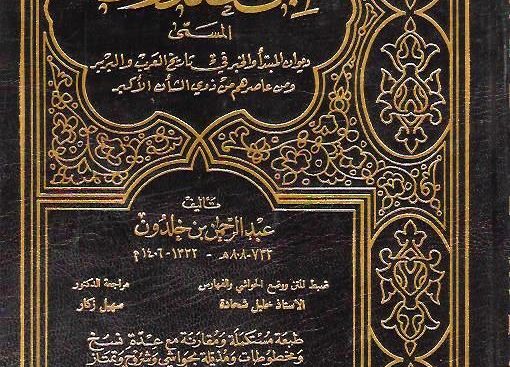 المسمى
ديوان المبتدأ والخبر في تاريخ العرب والبربر
ومن عاصرهم من ذوي الشأن الأكبر
تأليف
عبد الرحمن بن خلدون
٧٣٢-٨٠٨هـ - ١٣٣٢-١٤٠٦م
ضبط المتن ووضع الحواشي والفهارس
الأستاذ خليل شحادة
مراجعة الدكتور
سهيل زكار
طبعة مستكملة ومقارنة مع عدة نسخ
ومخطوطات ومذيلة بحواشي وشروح وتمتاز